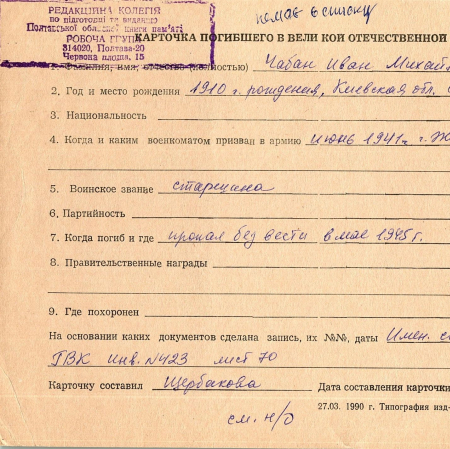 немає в списку
РЕДАКЦІЙНА КОЛЕГІЯ
по підготовці та виданню
Полтавської обласної книги пам'яті
РОБОЧА ГРУПА
314020, Полтава-20
Червона площа, 15
КАРТОЧКА ПОГИБШЕГО В ВЕЛИКОЙ ОТЕЧЕСТВЕННОЙ
1. Фамилия, имя, отчество (полностью) Чабан Иван Михайл
2. Год и место рождения 1910 г. рождения, Киевская обл.
3. Национальность
4. Когда и каким военкоматом призван в армию июнь 1941 г. г. Ж
5. Воинское звание старшина
6. Партийность
7. Когда погиб и где пропал без вести в мае 1945 г.
8. Правительственные награды
9. Где похоронен
На основании каких документов сделана запись, их №№, даты Имен. с
ГВК инв. №423 лист 70
Карточку составил Щербакова Дата составления карточки
27.03. 1990 г. Типография изд-
см. н/о